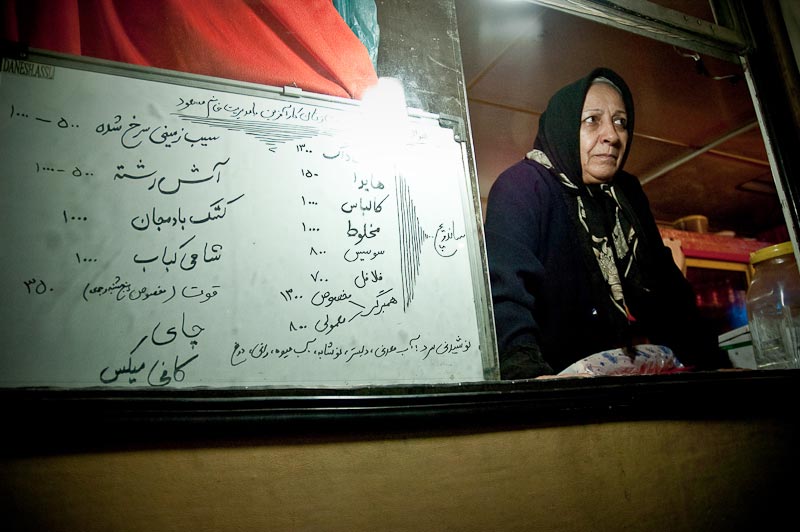 با مدیریت خانم مسعود
ساندویچ
۱۳۰۰
هایدا ۱۵۰
کالباس ۱۰۰۰
مخلوط ۱۰۰۰
سوسیس ۸۰۰
فلافل ۷۰۰
همبرگر مخصوص ۱۳۰۰
معمولی ۸۰۰
نوشیدنی سرد: آب معدنی، دلستر، نوشابه، آب میوه، رانی، دوغ
سیب زمینی سرخ شده ۵۰۰ - ۱۰۰۰
آش رشته ۵۰۰ - ۱۰۰۰
کشک بادمجان ۱۰۰۰
شامی کباب ۱۰۰۰
قوت (مخصوص ۳۵۰
چای
کافی میکس